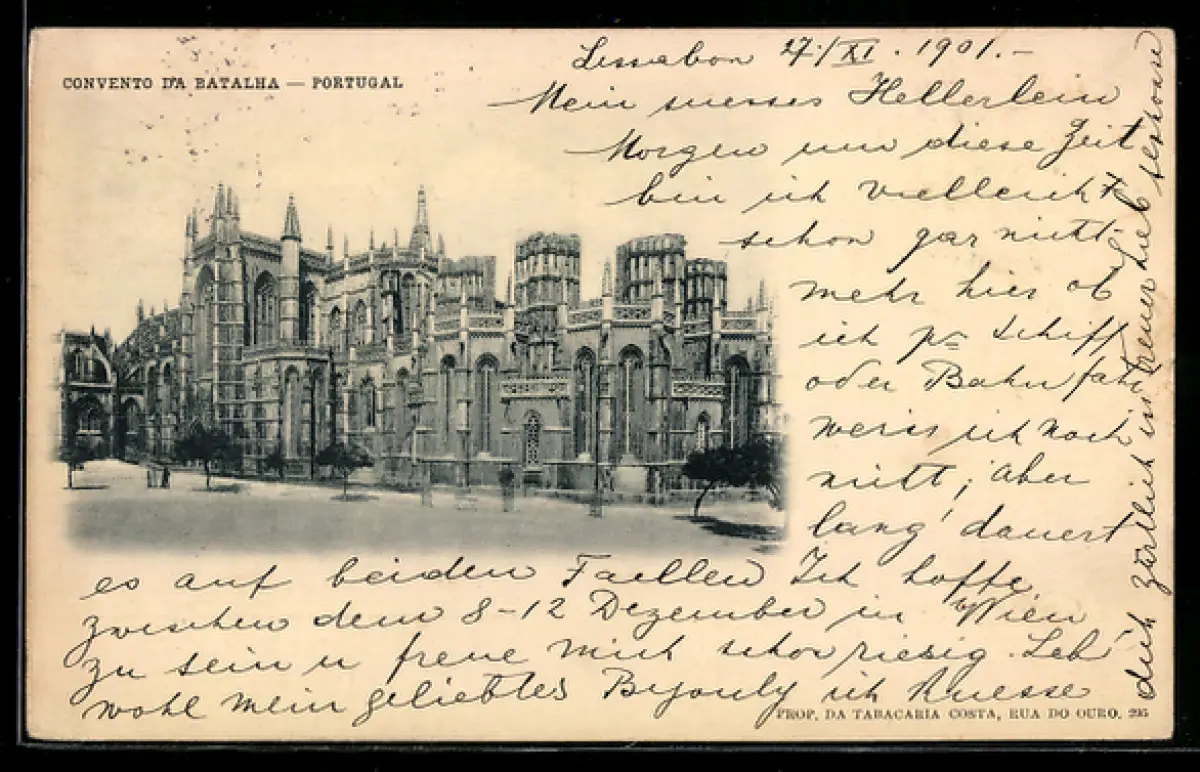 CONVENTO DA BATALHA — PORTUGAL
Lissabon 27./XI. 1901.-
Mein suesses Hellerlein
Morgen um diese Zeit
bin ich vielleicht
schon gar nicht
mehr hier ob
ich pr Schiff
oder Bahn fahr
weiss ich noch
nicht; aber
lang' dauert
es auf beiden Faellen Ich hoffe
zwischen dem 8-12 Dezember in Wien
zu sein u freue mich schon riesig. Leb'
wohl mein geliebtes Bijouly ich kuesse
dich zärtlich in treuer Lieb
PROP. DA TABACARIA COSTA, RUA DO OURO, 295